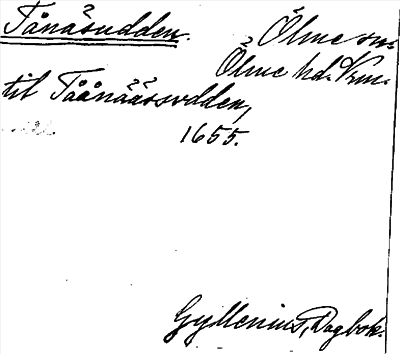 Tånäsudden. Ölme sn.
Ölme hd. Vrm.
til Tåånääsvdden,
1655.
Gyllenius, Dagbok.